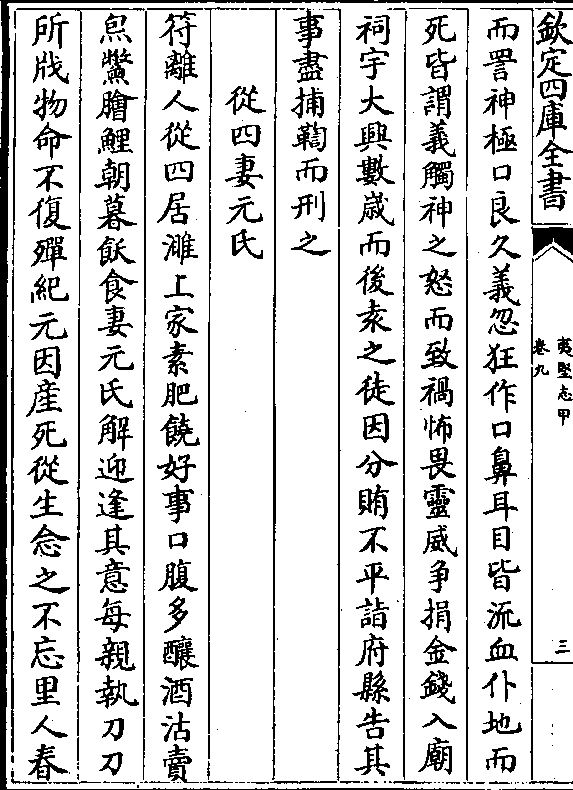 欽定四庫全書
夷堅志甲
卷九
三
而詈神極口良久義忽狂作口鼻耳目皆流血仆地而
死皆謂義觸神之怒而致禍怖畏靈威争捐金錢入廟
祠宇大興數嵗而後亥之徒因分賄不平詣府縣告其
事盡捕鞫而刑之
從四妻元氏
符離人從四居濉上家素肥饒好事口腹多釀酒沽賣
炰鱉膾鯉朝暮飫食妻元氏解迎逢其意每親執刀刀
所戕物命不復殫紀元因産死從生念之不忘里人春